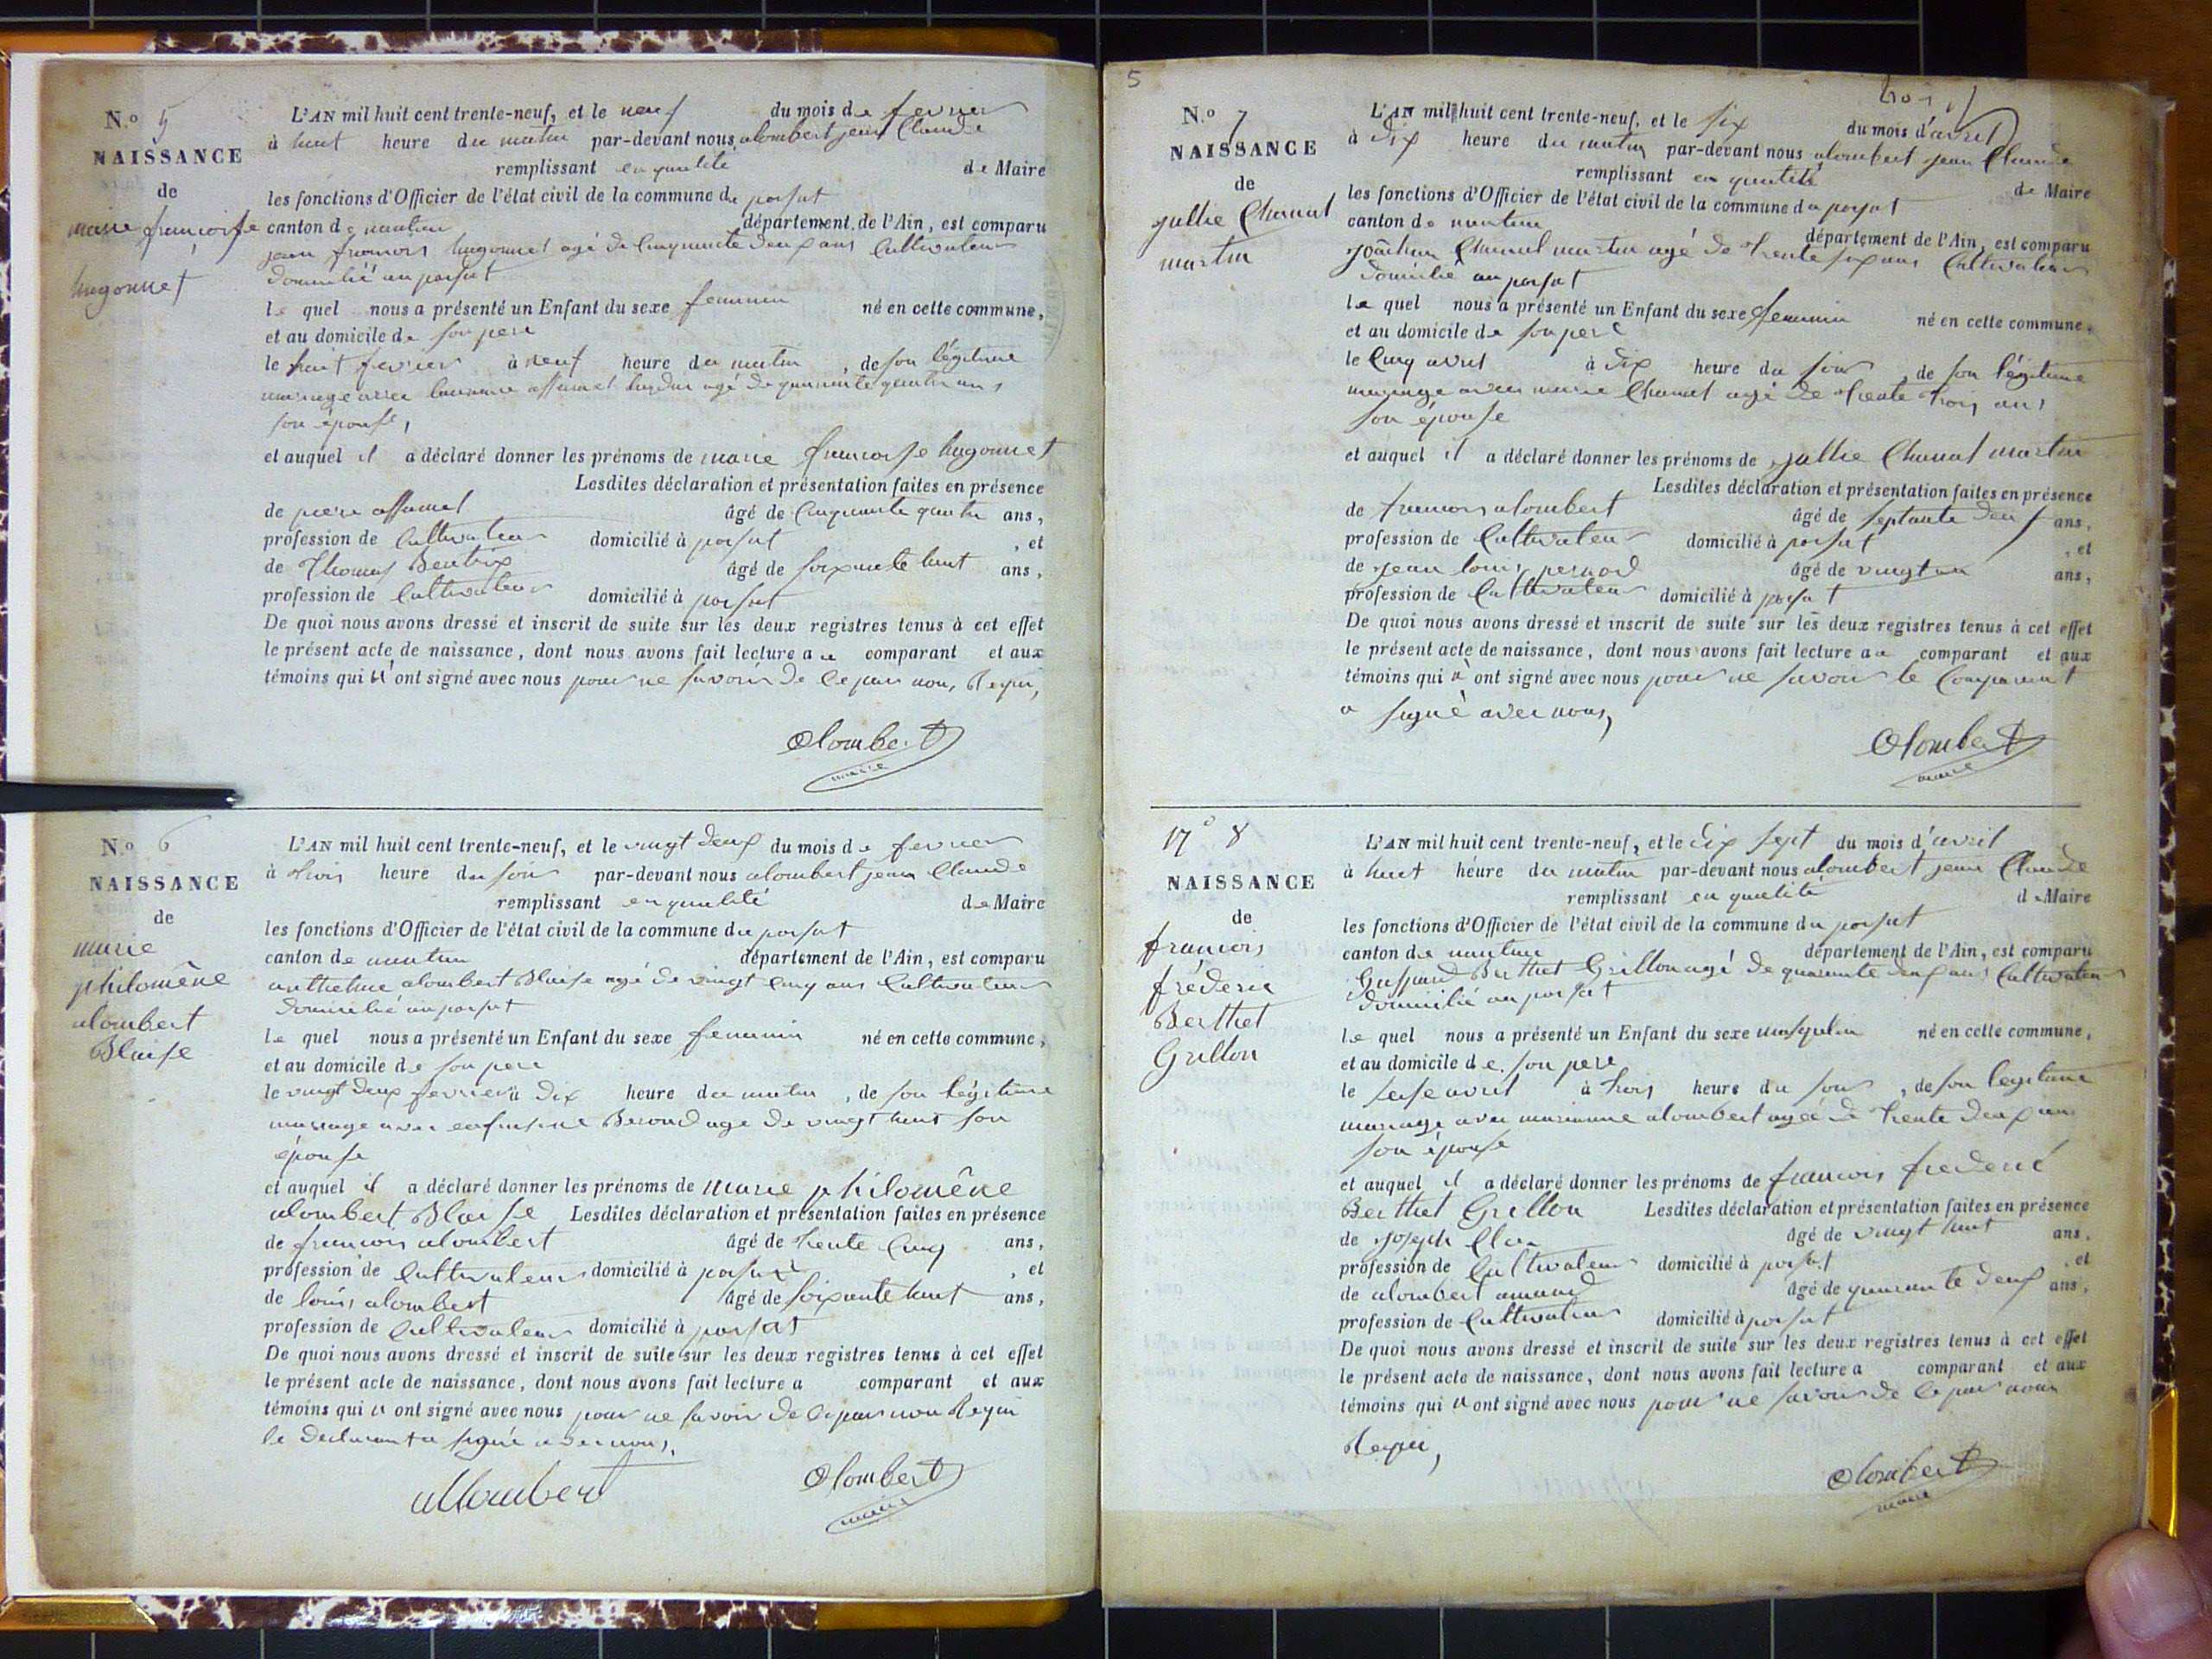 N.o 5
NAISSANCE
de
marie françoise
hugonnet
L'AN mil huit cent trente-neuf, et le neuf du mois de fevrier
à huit heure du matin par-devant nous alombert jean Claude
remplissant en qualité de Maire
les fonctions d'Officier de l'état civil de la commune du porsat
canton de nantua département de l'Ain, est comparu
jean francois hugonnet agé de Cinquante deux ans Cultivateur
domicilié au porsat
le quel nous a présenté un Enfant du sexe feminin né en cette commune,
et au domicile de son pere
le huit fevrier à neuf heure du matin, de son légitime
mariage avec agé de quarante quatre ans
son épouse,
et auquel il a déclaré donner les prénoms de marie francoise hugonnet
Lesdites déclaration et présentation faites en présence
de pierre âgé de Cinquante quatre ans,
profession de Cultivateur domicilié à porsat, et
de Thomas Beatrix âgé de soixante huit ans,
profession de Cultivateur domicilié à porsat
De quoi nous avons dressé et inscrit de suite sur les deux registres tenus à cet effet
le présent acte de naissance, dont nous avons fait lecture au comparant et aux
témoins qui n'ont signé avec nous pour ne savoir de ce par nous Requi,
alombert
maire
N.o 6
NAISSANCE
de
marie
philomêne
alombert
Blaise
L'AN mil huit cent trente-neuf, et le vingt deux du mois de fevrier
à trois heure du soir par-devant nous alombert jean Claude
remplissant en qualité de Maire
les fonctions d'Officier de l'état civil de la commune du porsat
canton de nantua département de l'Ain, est comparu
anthelme alombert Blaise agé de vingt Cinq ans Cultivateur
domicilié au porsat
le quel nous a présenté un Enfant du sexe feminin né en cette commune,
et au domicile de son pere
le vingt deux fevrier à dix heure du matin, de son légitime
mariage avec Beroud agé de vingt huit son
épouse
et auquel il a déclaré donner les prénoms de marie philomêne
alombert Blaise Lesdites déclaration et présentation faites en présence
de francois alombert âgé de trente Cinq ans,
profession de Cultivateur domicilié à porsat, et
de louis alombert âgé de soixante huit ans,
profession de Cultivateur domicilié à porsat
De quoi nous avons dressé et inscrit de suite sur les deux registres tenus à cet effet
le présent acte de naissance, dont nous avons fait lecture a comparant et aux
témoins qui n ont signé avec nous pour ne savoir de ce par nou Requi
le declarant a signé avec nous,
allombert
alombert
maire
5
N.o 7
NAISSANCE
de
jullie Chanal
martin
L'AN mil huit cent trente-neuf, et le six du mois d'avril
à dix heure du matin par-devant nous alombert jean Claude
remplissant en qualité de Maire
les fonctions d'Officier de l'état civil de la commune du porsat
canton de nantua département de l'Ain, est comparu
joachim Chanal martin agé de trente six ans Cultivateur
domicilié au porsat
le quel nous a présenté un Enfant du sexe feminin né en cette commune,
et au domicile de son pere
le Cinq avril à dix heure du soir, de son légitime
mariage avec marie Chanal agé de trente trois ans
son épouse
et auquel il a déclaré donner les prénoms de jullie Chanal martin
Lesdites déclaration et présentation faites en présence
de francois alombert âgé de septante deux ans,
profession de Cultivateur domicilié à porsat, et
de jean louis pernod âgé de vingt un ans,
profession de Cultivateur domicilié à porsat
De quoi nous avons dressé et inscrit de suite sur les deux registres tenus à cet effet
le présent acte de naissance, dont nous avons fait lecture au comparant et aux
témoins qui n ont signé avec nous pour ne savoir le Comparant
a signé avec nous,
alombert
maire
N° 8
NAISSANCE
de
francois
fréderic
Berthet
Grillon
L'AN mil huit cent trente-neuf, et le dix sept du mois d'avril
à huit heure du matin par-devant nous alombert jean Claude
remplissant en qualité de Maire
les fonctions d'Officier de l'état civil de la commune du porsat
canton de nantua département de l'Ain, est comparu
Gaspard Berthet Grillon agé de quarante deux ans Cultivateur
domicilié au porsat
le quel nous a présenté un Enfant du sexe masqulin né en cette commune,
et au domicile de son pere
le seise avril à trois heure du soir, de son legitime
mariage avec marianne alombert agée de trente deux ans
son épouse
et auquel il a déclaré donner les prénoms de francois frederic
Berthet Grillon Lesdites déclaration et présentation faites en présence
de joseph âgé de vingt huit ans,
profession de Cultivateur domicilié à porsat, et
de alombert amand âgé de quarante deux ans,
profession de Cultivateur domicilié à porsat
De quoi nous avons dressé et inscrit de suite sur les deux registres tenus à cet effet
le présent acte de naissance, dont nous avons fait lecture a comparant et aux
témoins qui n ont signé avec nous pour ne savoir de ce par nous
Requi,
alombert
maire